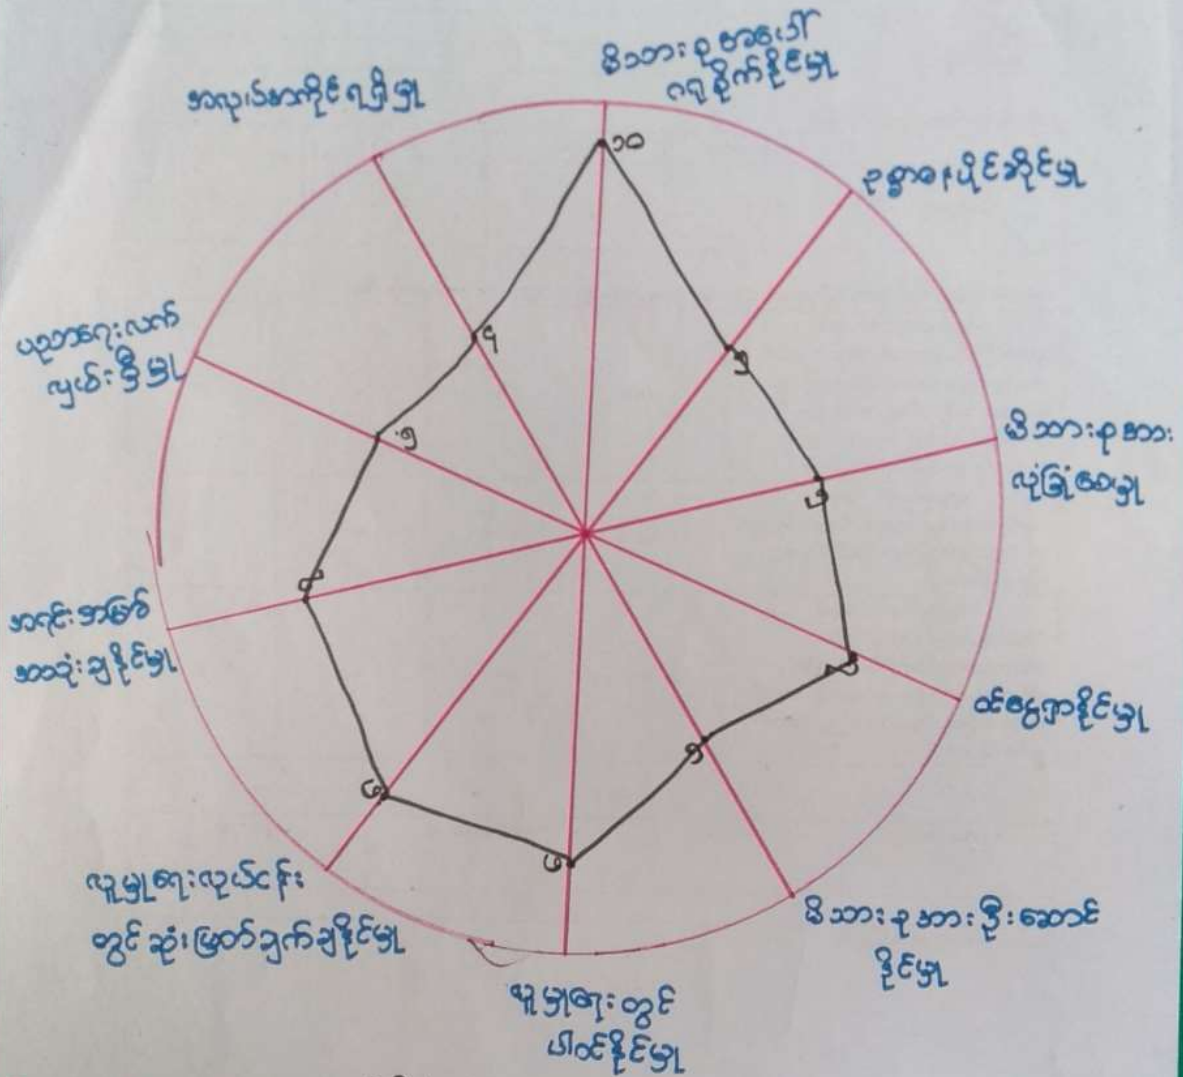 မိသားစုအပေါ်
ဂရုစိုက်နိုင်မှု
၁၀
ဥစ္စာဓနပိုင်ဆိုင်မှု
၅
မိသားစုအား
လုံခြုံစေမှု
ဝင်ငွေရှာနိုင်မှု
မိသားစုအားဦးဆောင်
နိုင်မှု
၅
လူမှုရေးတွင်
ပါဝင်နိုင်မှု
၆
လူမှုရေးလုပ်ငန်း
တွင်ဆုံးဖြတ်ချက်ချနိုင်မှု
အရင်းအမြစ်
အသုံးချနိုင်မှု
ပညာရေးလက်
လှမ်းမှီမှု
၅
အလုပ်အကိုင်ရရှိမှု